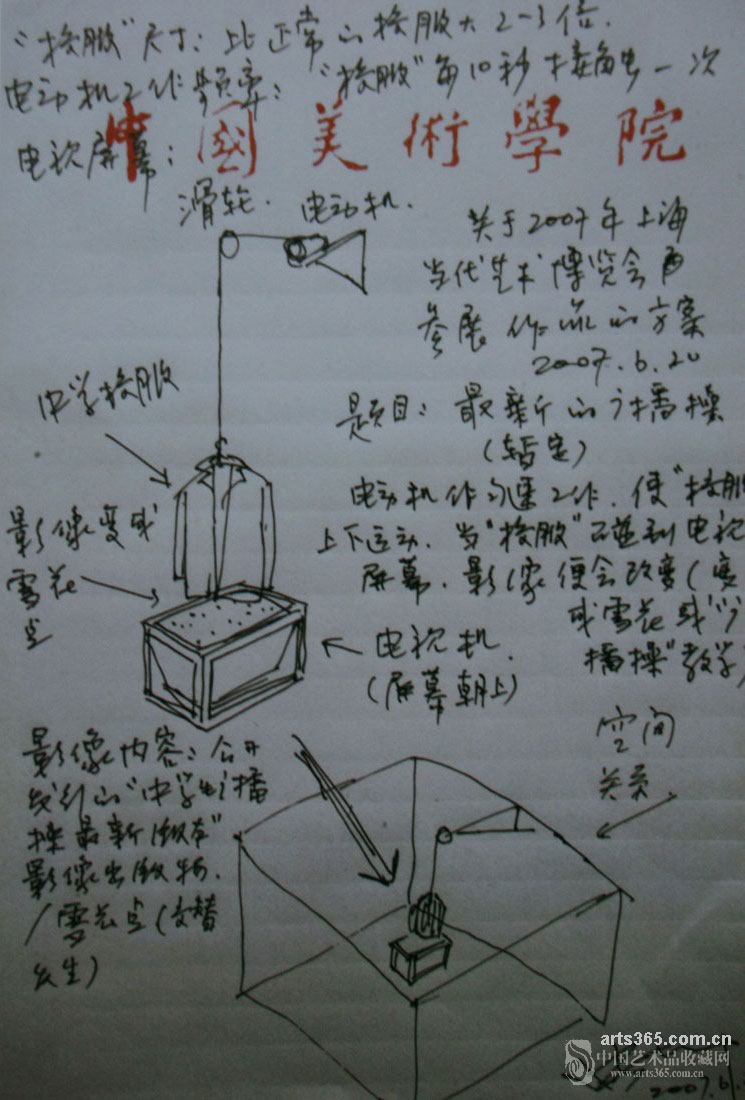 "校服"尺寸：比正常的校服大2-3倍.
电动机工作频率："校服"每10秒接触一次
电视屏幕：
中國美術學院
滑轮. 电动机.
关于2007年上海
当代艺术博览会
参展作品的方案
2007.6.20
题目：最新的广播操
(暂定)
中学校服
电动机作匀速工作.使"校服
上下运动.当"校服"碰到电视
屏幕.影像便会改变(变
成雪花或"广
播操"教学)
影像变成
雪花
点
电视机.
(屏幕朝上)
影像内容：公开
发行的"中学生广播
操最新版本"
影像出版物.
/雪花点(交替
发生)
空间
关系
arts365.com.cn
中国艺术品收藏网
www.arts365.com.cn
2007.6.